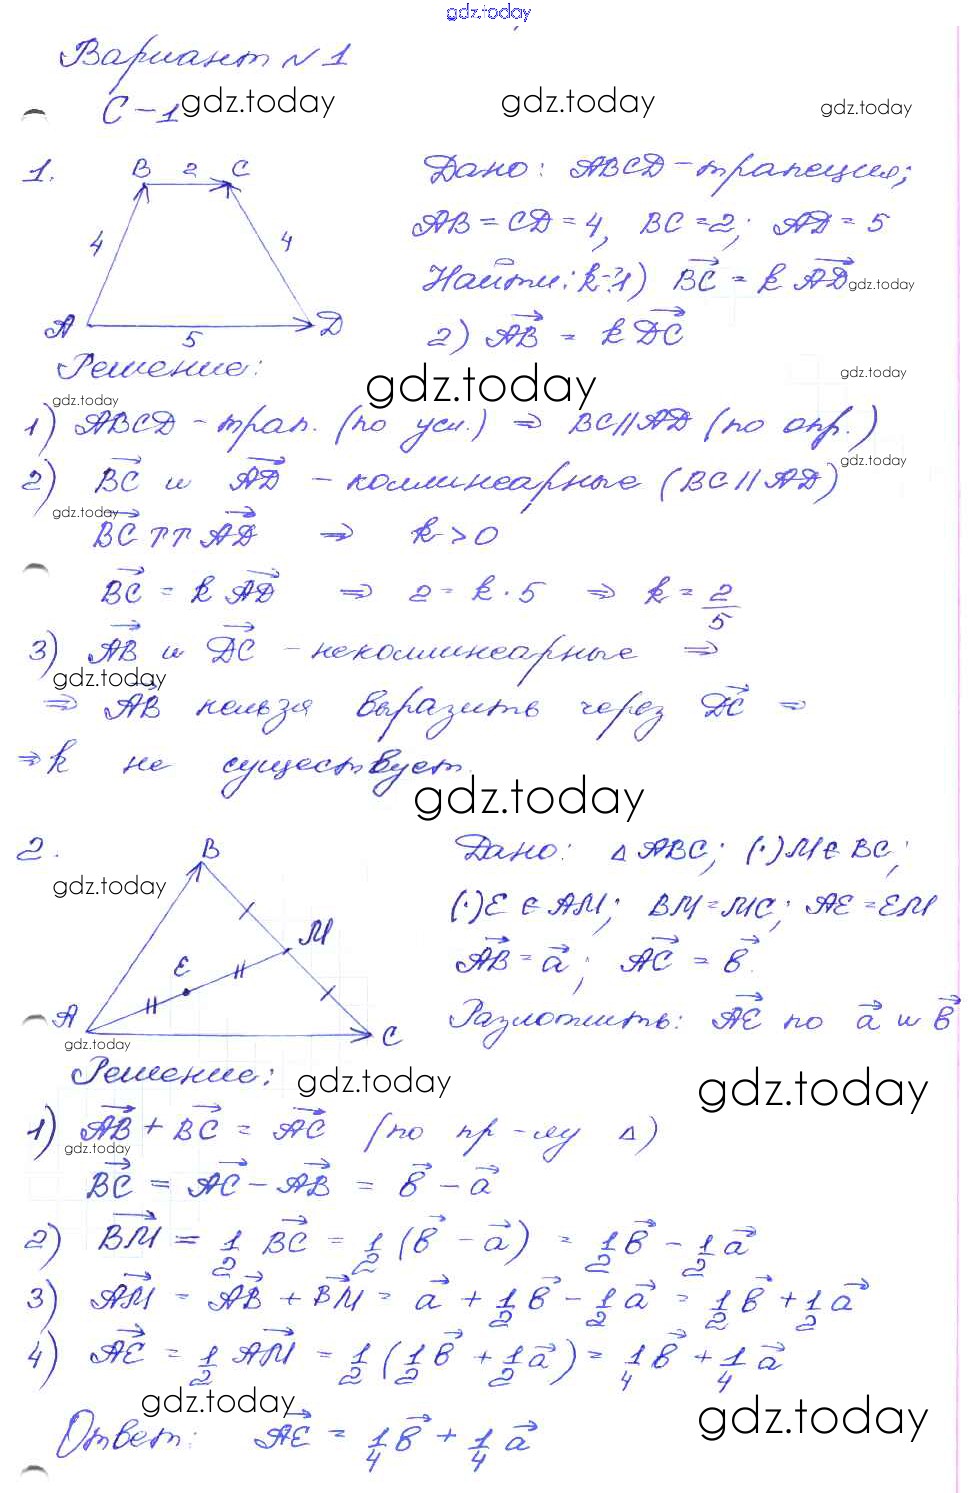 gdz.today
Вариант №1
С-1 gdz.today gdz.today gdz.today
1. B 2 C
4 4
A 5 D
Дано: ABCD - трапеция;
AB = CD = 4, BC = 2; AD = 5
Найти: k-? 1) BC = k AD gdz.today
2) AB = k DC
Решение:
gdz.today gdz.today gdz.today
1) ABCD - трап. (по усл.) ⇒ BC || AD (по опр.)
2) BC и AD - коллинеарные (BC || AD) gdz.today
gdz.today
BC ↑↑ AD ⇒ k > 0
BC = k AD ⇒ 2 = k · 5 ⇒ k = 2/5
3) AB и DC - неколлинеарные ⇒
gdz.today
⇒ AB нельзя выразить через DC ⇒
⇒ k не существует.
gdz.today
2. B
M
E
A C
gdz.today
gdz.today
Дано: △ ABC; (·) M ∈ BC;
(·) E ∈ AM; BM = MC; AE = EM
AB = a; AC = b.
Разложить: AE по a и b
Решение: gdz.today gdz.today
1) AB + BC = AC (по пр-лу △)
gdz.today
BC = AC - AB = b - a
2) BM = 1/2 BC = 1/2 (b - a) = 1/2 b - 1/2 a
3) AM = AB + BM = a + 1/2 b - 1/2 a = 1/2 b + 1/2 a
4) AE = 1/2 AM = 1/2 (1/2 b + 1/2 a) = 1/4 b + 1/4 a
gdz.today gdz.today
Ответ: AE = 1/4 b + 1/4 a